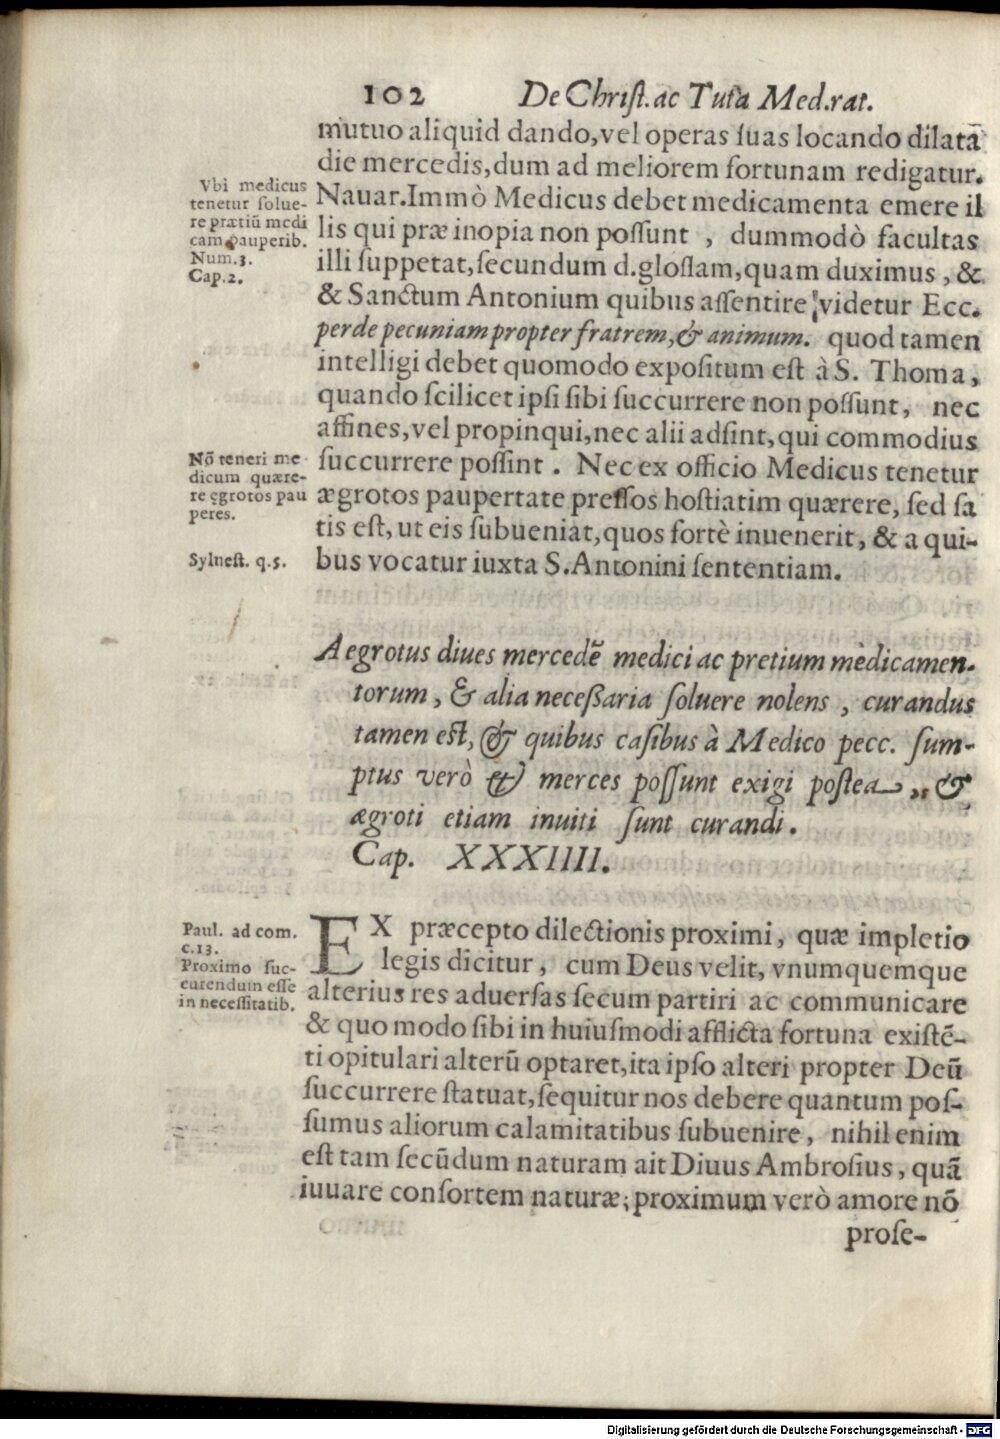 102 De Christ. ac Tuta Med. rat.
mutuo aliquid dando, vel operas suas locando dilatã
die mercedis, dum ad meliorem fortunam redigatur.
Vbi medicus
tenetur solue-
re prætiũ medi
cam. pauperib.
Num. 3.
Cap. 2.
Nauar. Immò Medicus debet medicamenta emere il
lis qui præ inopia non possunt , dummodò facultas
illi suppetat, secundum d. glossam, quam duximus , &
& Sanctum Antonium quibus assentire videtur Ecc.
perde pecuniam propter fratrem, & animum. quod tamen
intelligi debet quomodo expositum est à S. Thoma ,
quando scilicet ipsi sibi succurrere non possunt , nec
affines, vel propinqui, nec alii adsint, qui commodius
Nõ teneri me-
dicum quære-
re egrotos pau
peres.
succurrere possint . Nec ex officio Medicus tenetur
ægrotos paupertate pressos hostiatim quærere, sed sa
tis est, ut eis subueniat, quos fortè inuenerit, & a qui-
Sylnest. q. 5.
bus vocatur iuxta S. Antonini sententiam.
Aegrotus diues mercedẽ medici ac pretium medicamen-
torum , & alia necessaria soluere nolens , curandus
tamen est, & quibus casibus à Medico pecc. sum-
ptus verò & merces possunt exigi postea , &
ægroti etiam inuiti sunt curandi .
Cap. XXXIIII.
Paul. ad com.
c. 13.
Proximo suc-
currendum esse
in necessitatib.
EX præcepto dilectionis proximi , quæ impletio
legis dicitur , cum Deus velit, vnumquemque
alterius res aduersas secum partiri ac communicare
& quo modo sibi in huiusmodi afflicta fortuna existẽ-
ti opitulari alterũ optaret, ita ipso alteri propter Deũ
succurrere statuat, sequitur nos debere quantum pos-
sumus aliorum calamitatibus subuenire , nihil enim
est tam secũdum naturam ait Diuus Ambrosius , quã
iuuare consortem naturæ; proximum verò amore nõ
prose-
Digitalisierung gefördert durch die Deutsche Forschungsgemeinschaft - DFG